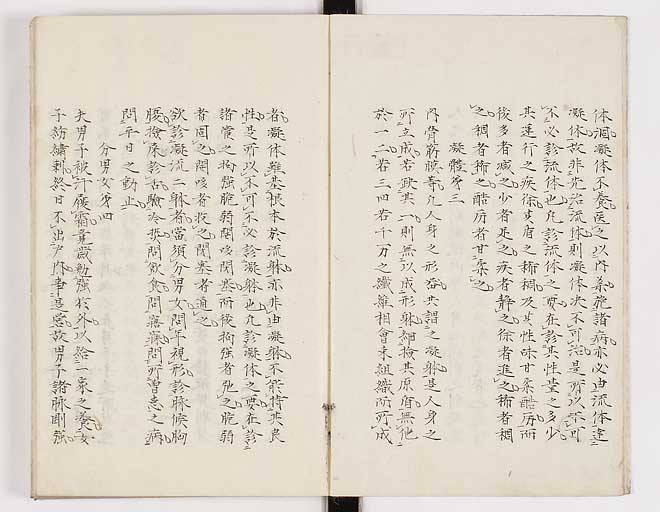 体涸凝体不養医之以内薬施諸病亦必由流体達
凝体故非先治流体則凝体决不可治是所以不可
不必診流体也凡診流体之要在診其性量之多少
其運行之疾徐其質之稀稠及其性味甘柔酷厉而
後多者减之少者足之疾者静之徐者進之稀者稠
之稠者稀之酷厉者甘柔之
凝體第三
内骨筋膜等凡人身之形器共謂之凝躰是人身之
所立成若欲其一則無以成形躰細撿其原質無他
於一二若三四若千万之纖維相會来組織所成
者凝体雖基根本於流躰亦非由凝躰不能持其良
性是所以不可不必診凝躰也凡診凝体之要在診
諸質之拘強脆弱閉塞所後拘強者弛之脆弱
者固之開者收之閉塞者通之
欲診凝流二躰者當須分男女問年視形診脉候胸
腹撿屎診舌驗冷热問飲食問寤寐問所曽患之病
問平日之動止
分男女第四
夫男子被汗履霜貫歳勤強於外以給一家之養女
子紡繍刺終日不出戸内事是営故男子諸脉剛強